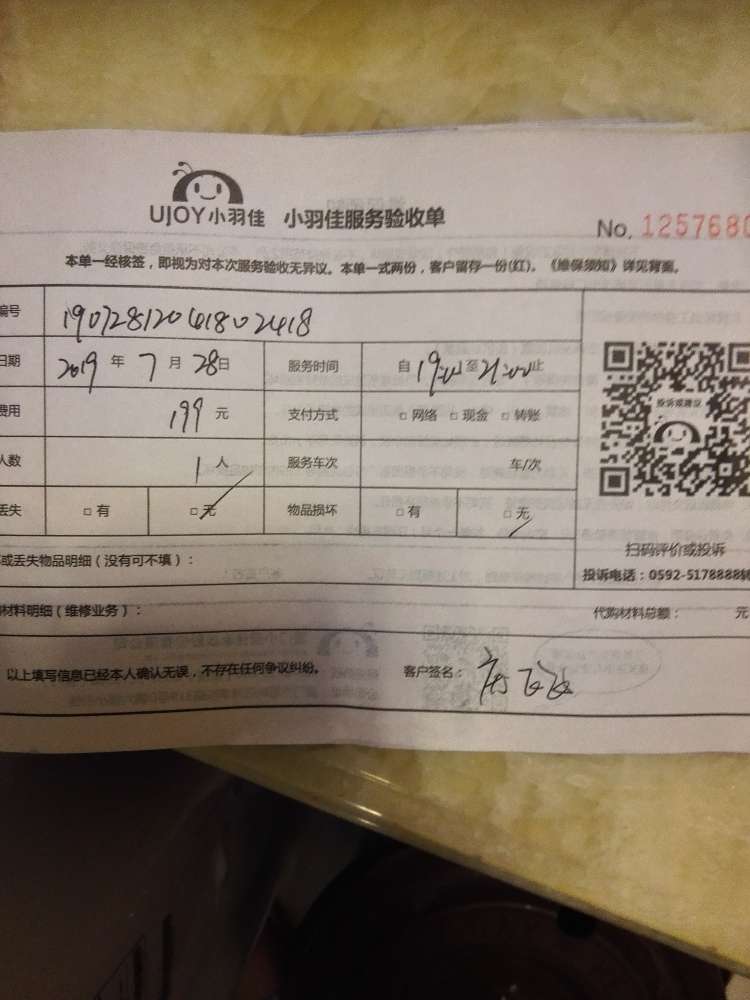 UJOY小羽佳 小羽佳服务验收单
No. 1257680
本单一经核签，即视为对本次服务验收无异议。本单一式两份，客户留存一份(红)。《维保须知》详见背面。
编号 19072812041802418
日期 2019 年 7 月 28 日 服务时间 自 19:00 至 21:00 止
费用 199 元 支付方式 □ 网络 □ 现金 □ 转账
人数 1 人 服务车次 车/次
丢失 □ 有 □ 无 物品损坏 □ 有 □ 无
投诉或建议
扫码评价或投诉
投诉电话：0592-5178888转
或丢失物品明细（没有可不填）：
材料明细（维修业务）： 代购材料总额： 元
以上填写信息已经本人确认无误，不存在任何争议纠纷。 客户签名：